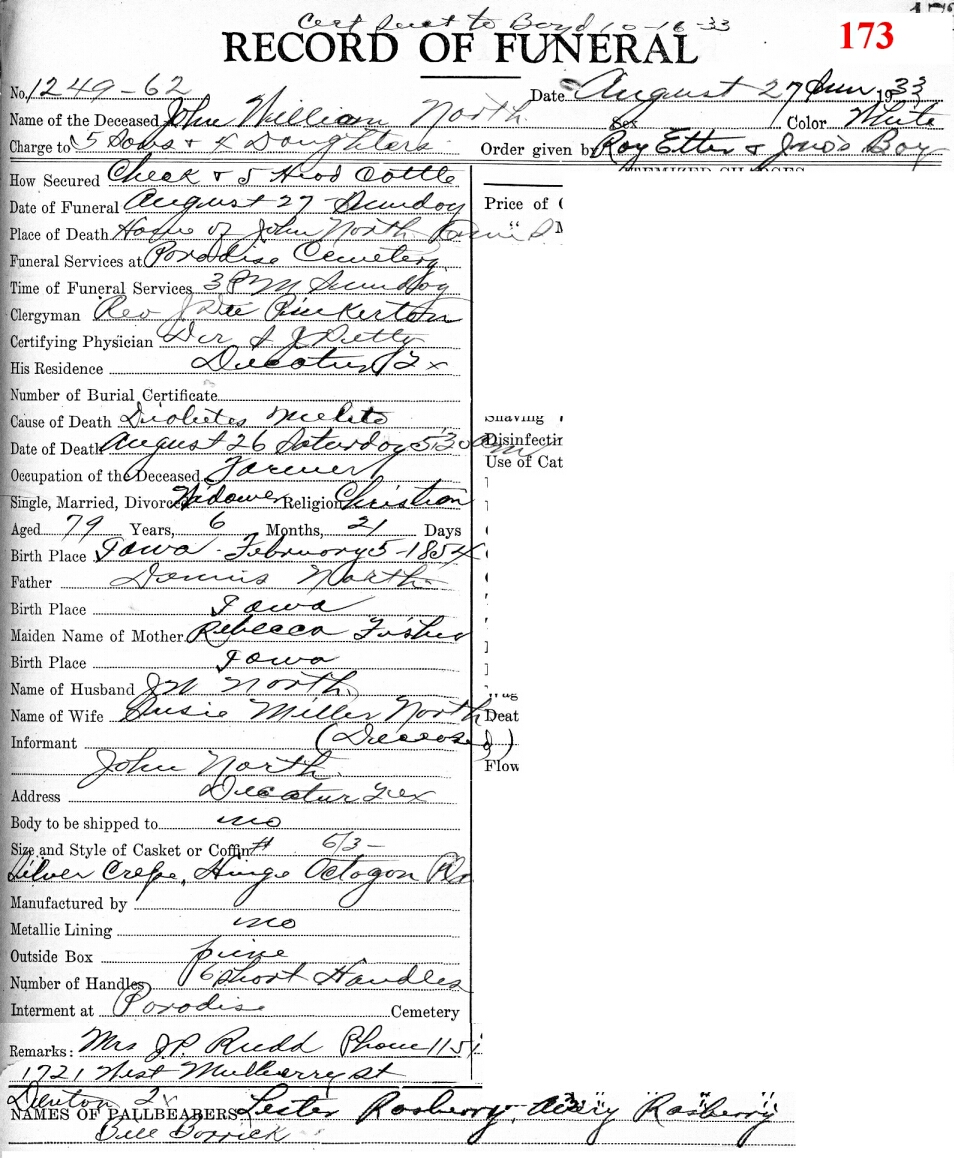 Cert Sent to Boyd 10-16-33
RECORD OF FUNERAL 173
No. 1249-62 Date August 27 Sun 1933
Name of the Deceased John William North Sex Color White
Charge to 5 Sons + 4 Daughters Order given by Roy Etter & Jno's Boy
ITEMIZED CHARGES
How Secured Check + 5 Head Cattle
Date of Funeral August 27 - Sunday Price of
Place of Death Home of John North
Funeral Services at Paradise Cemetery
Time of Funeral Services 3 PM Sunday
Clergyman Rev J. Dee Pinkerton
Certifying Physician J Petty
His Residence Decatur Tx
Number of Burial Certificate
Cause of Death Diabetes Melito Shaving
Date of Death August 26 Saturday 5:30 am Disinfectin
Occupation of the Deceased Farmer Use of Cat
Single, Married, Divorced Widower Religion Christian
Aged 79 Years, 6 Months, 21 Days
Birth Place Iowa - February 5 - 1854
Father Dennis North
Birth Place Iowa
Maiden Name of Mother Rebecca Fisher
Birth Place Iowa
Name of Husband JW North
Name of Wife Susie Miller North Deat
Informant (Deceased)
John North Flow
Address Decatur Tex
Body to be shipped to no
Size and Style of Casket or Coffin # 6/3 -
Silver Crepe, Hinge Octagon
Manufactured by
Metallic Lining no
Outside Box pine
Number of Handles 6 short Handles
Interment at Paradise Cemetery
Remarks: Mrs J.P. Rudd Phone 1151
1721 West Mulberry St
Denton Tx
NAMES OF PALLBEARERS Lester Rasberry, Avery Rasberry
Bill Borrick